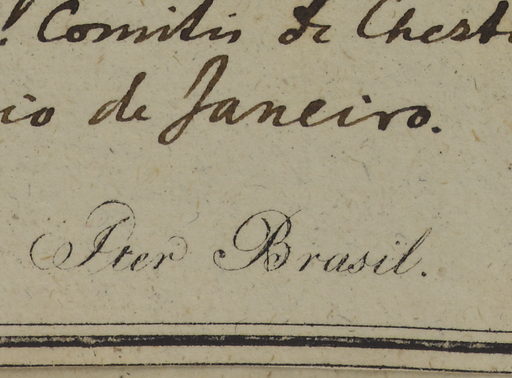 Comitis de Chest
io de Janeiro.
Iter Brasil.